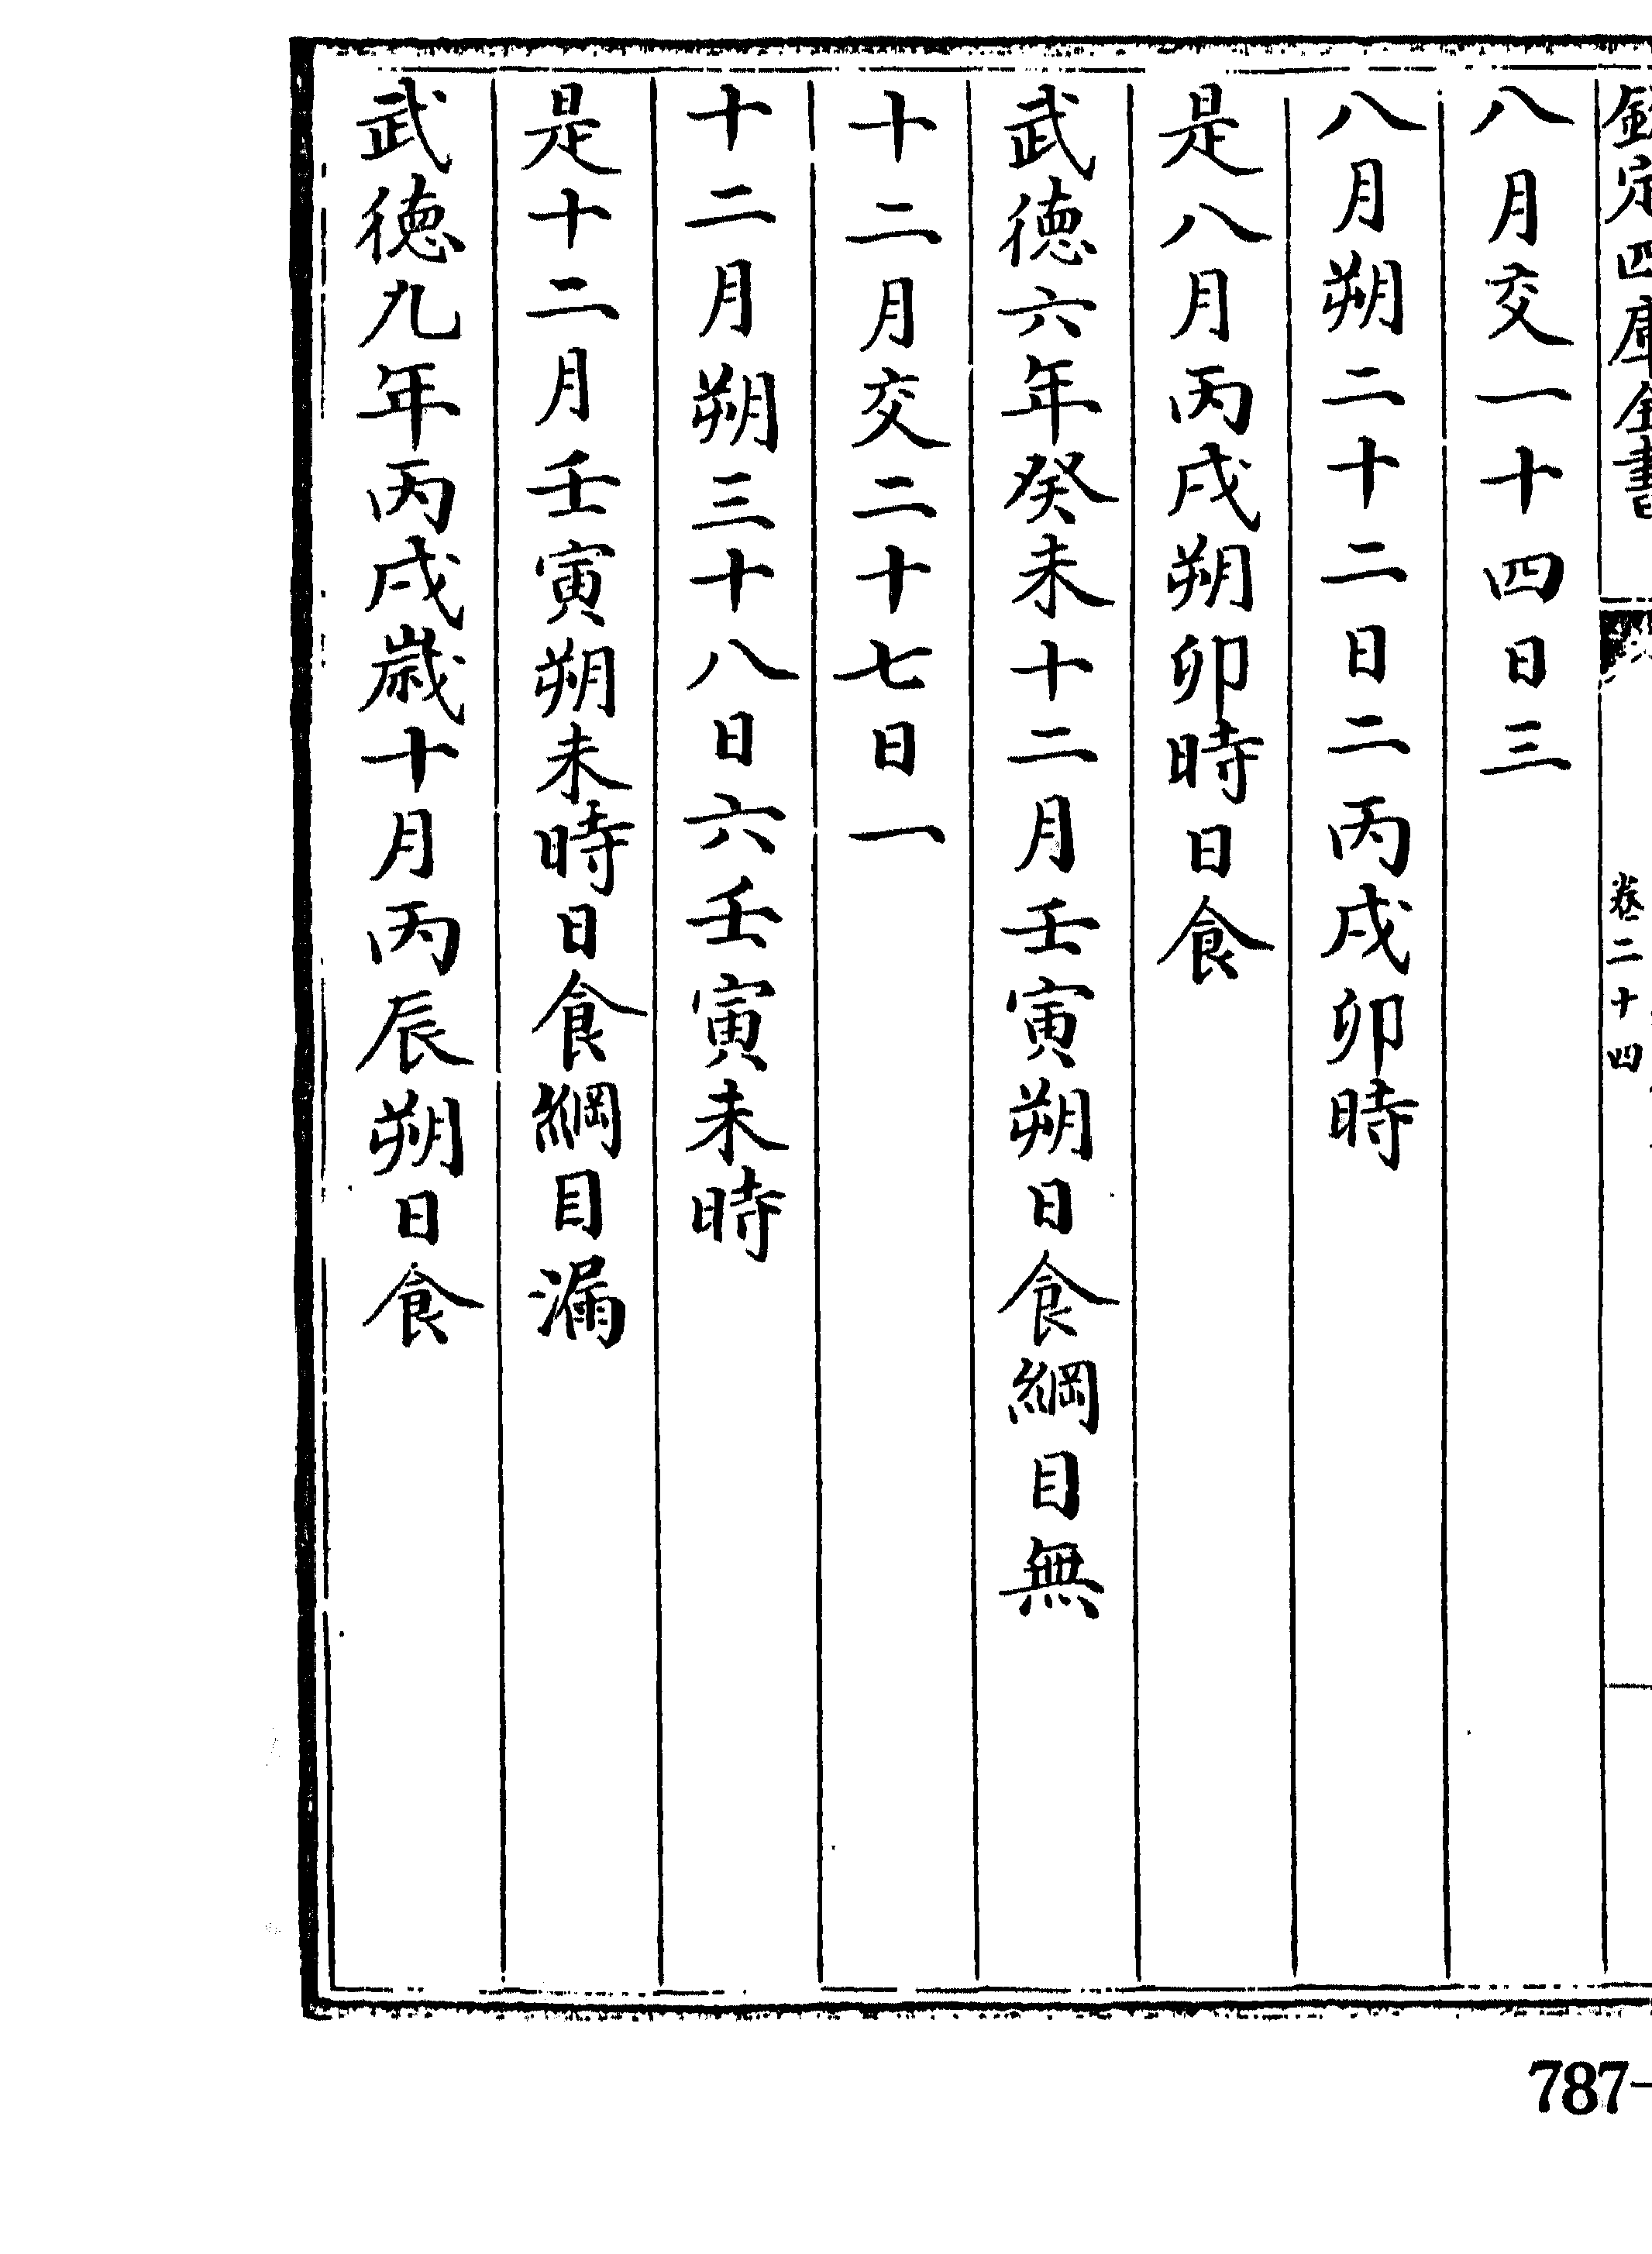 欽定四庫全書
卷二十四
八月交一十四日三
八月朔二十二日二丙戌卯時
是八月丙戌朔卯時日食
武德六年癸未十二月壬寅朔日食綱目無
十二月交二十七日一
十二月朔三十八日六壬寅未時
是十二月壬寅朔未時日食綱目漏
武德九年丙戌歲十月丙辰朔日食
787-